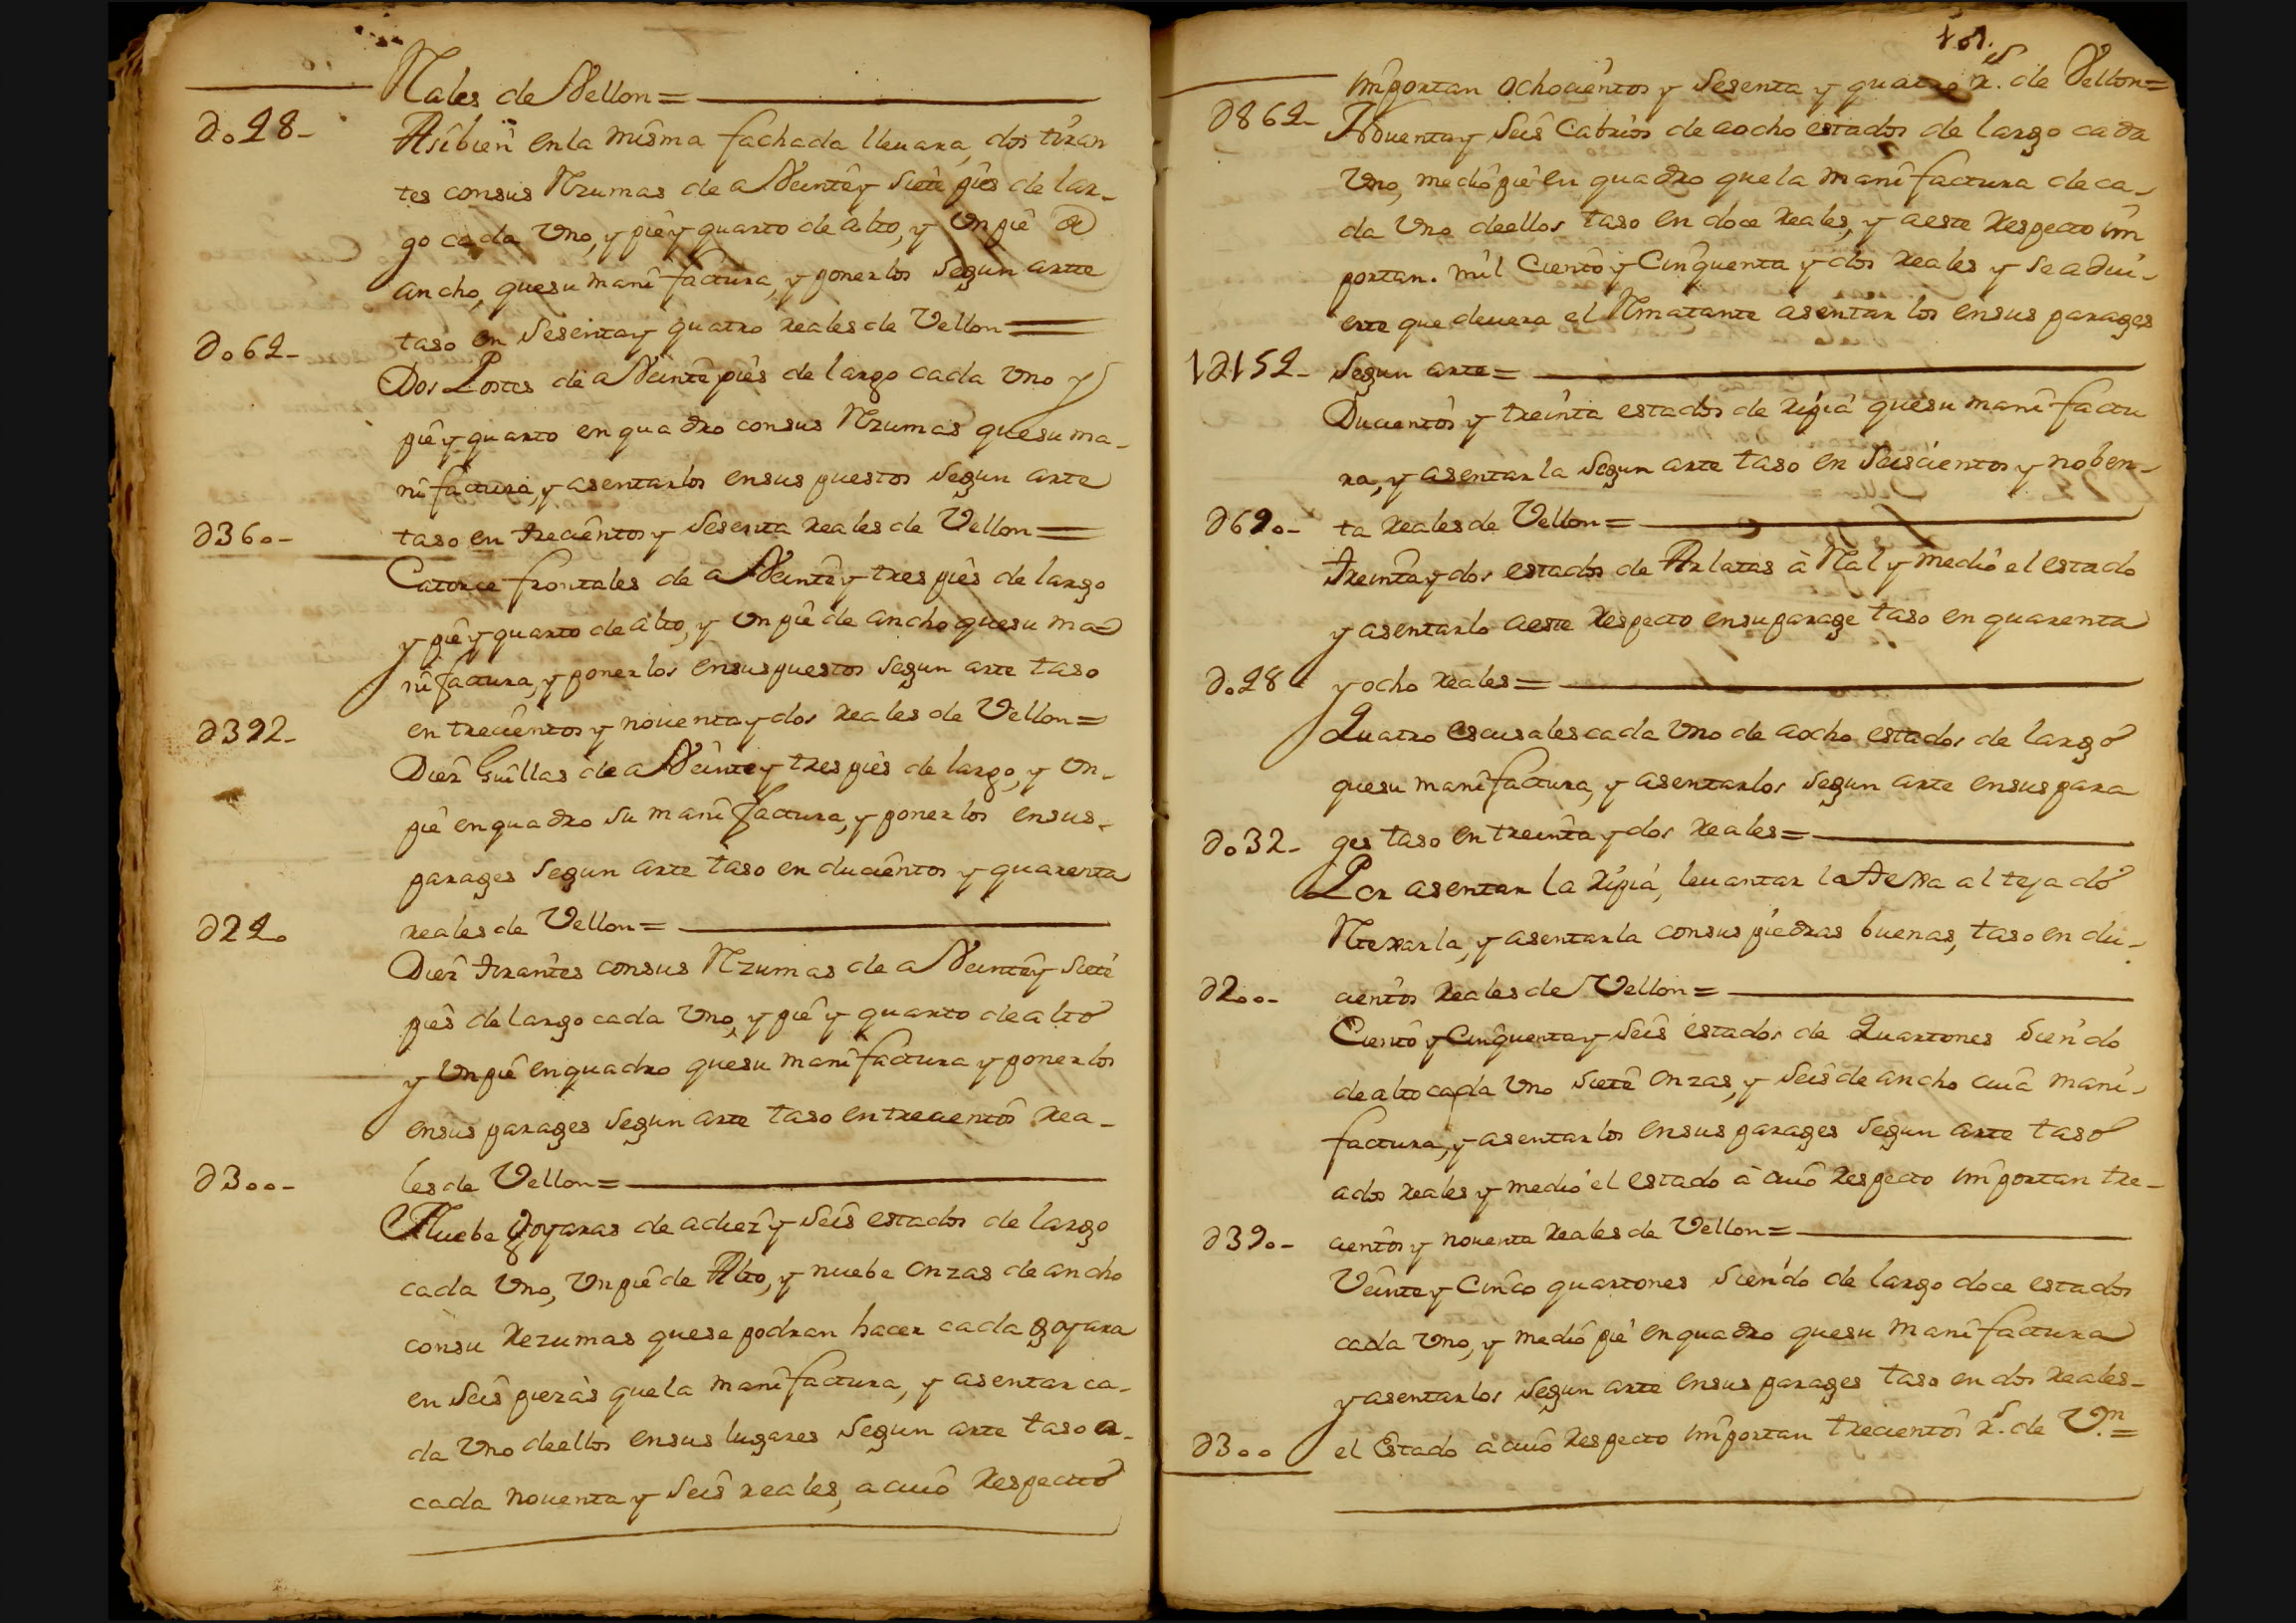 Rales de Vellon=
Do48-
Asibien enla misma fachada lleuara, dos tiran
tes consus Rzumas de a Veintey siete pies de lar-
go cada Uno, y piey quarto de alto, y Un pie de
ancho, quesu manifactura, y ponerlos Segun artte
Do64-
taso en Sesentay quatro reales de Vellon=
Dos Postes de a Veinte pies de largo cada Uno y
piey quarto en quadro consus Rzumas quesu ma-
nifactura, y asentarlos ensus puestos Segun arte
D360-
taso en trecientosy Sesenta reales de Vellon=
Catorce frontales de a Veintey tres pies de largo
y piey quarto de alto, y Un pie de ancho quesu ma-
nifactura, y ponerlos ensus puestos Segun arte taso
D392-
en trecientosy nouentaydos reales de Vellon=
Diez Guillas de a Veintey tres pies de largo, y Un-
pie enquadro su manifactura, y ponerlos ensus-
parages Segun arte taso en ducientos y quarenta
D240
reales de Vellon=
Diez tirantes consus Rzumas de a Veintey siete
pies de largo cada Uno, y pie y quarto de alto
y Un pie enquadro quesu manifactura y ponerlos
ensus parages Segun arte taso entrecientos rea-
D300-
les de Vellon=
Nuebe goyaras de adiez y seis estados de largo
cada Uno, Un pie de Alto, y nuebe onzas de ancho
consu Rezumas quese podran hacer cada goyara
en Seis piezas quela manifactura, y asentar ca-
da Uno deellos ensus lugares Segun arte taso a-
cada nouenta y Seis reales, a cuio Respecto
101.
Importan ochocientos y Sesenta y quatro Rs. de Vellon=
D864-
Nouentay Seis Cabrios de aocho estados de largo cada
Uno, medio pie en quadro quela manifactura de ca-
da Uno deellos taso en doce Reales, y aeste Respecto im
portan. mil Ciento y Cinquenta y dos Reales y se adui-
erte que deuera el Rmatante asentarlos ensus parages
1D152-
Segun arte=
Ducientos y treinta estados de Ripia quesu manifactu
ra, y asentarla Segun arte taso en Seiscientos y noben-
D690-
ta Reales de Vellon=
Treintaydos estados de Arlatas à Ral y medio el estado
y asentarlo aeste Respecto ensu parage taso en quarenta
Do48
y ocho Reales=
Quatro escusales cada Uno de aocho estados de largo
quesu manifactura, y asentarlos Segun arte ensus para
Do32-
ges taso en treinta y dos Reales=
Por asentar la Ripia, leuantar la teja al tejado
Rtexarla, y asentarla consus piedras buenas, taso en du-
D200-
cientos Reales de Vellon=
Ciento y Cinquentay Seis estados de Quartones Siendo
de alto cada Uno Siete onzas, y Seis de ancho cuia mani-
factura, y asentarlos ensus parages Segun arte taso
ados Reales y medio el estado à cuio Respecto importan tre-
D390-
cientos y nouenta Reales de Vellon=
Veintey Cinco quartones Siendo de largo doce estados
cada Uno, y medio pie enquadro quesu manifactura
y asentarlos Segun arte ensus parages taso en dos Reales-
D300
el Estado à cuio Respecto importan trecientos Rs. de Vn.=